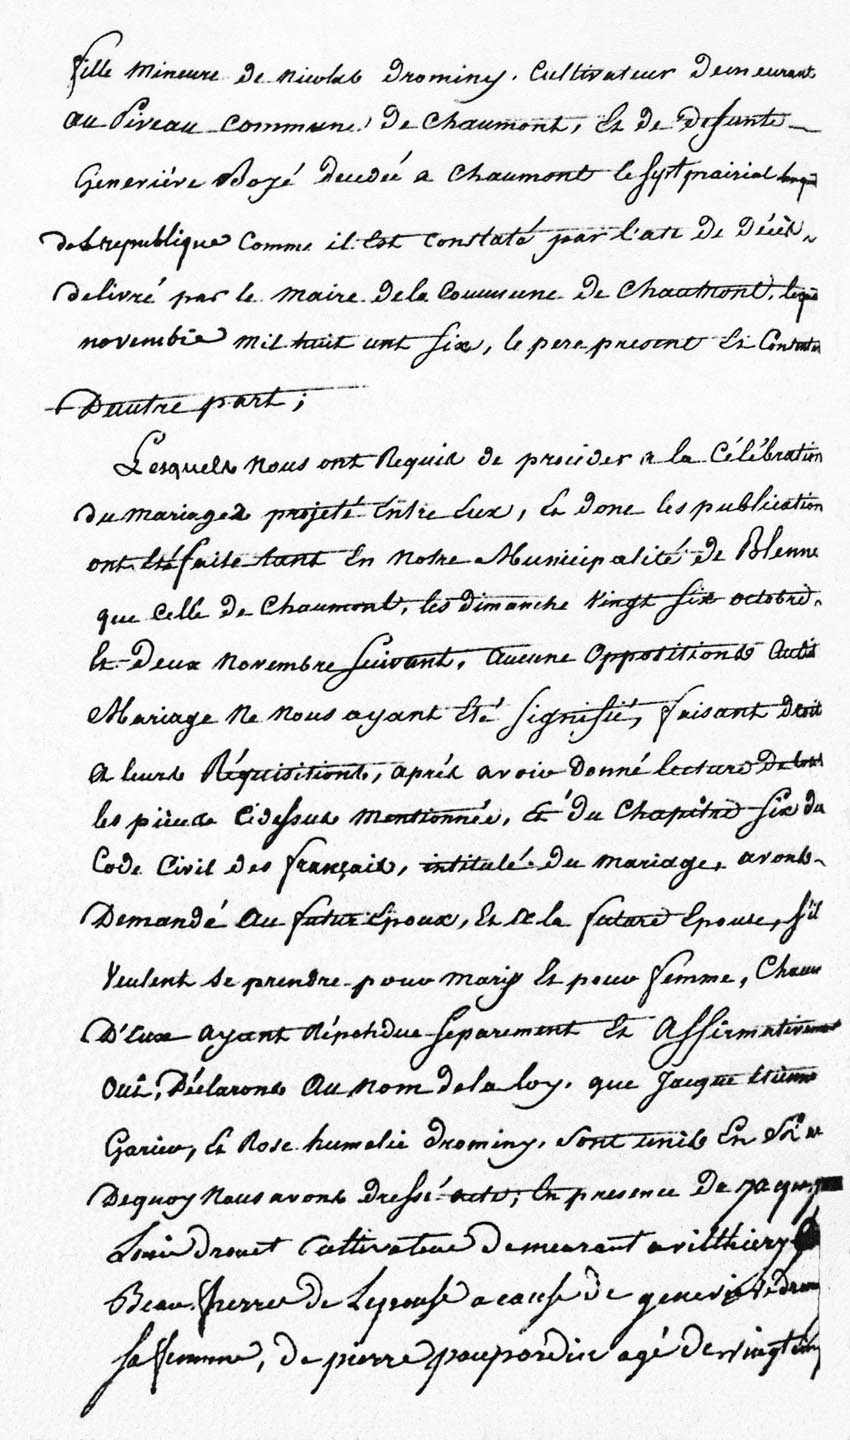 fille Mineure de Nicolas Drominy. Cultivateur Demeurant
au Péreau Commune De Chaumont, Et de Defunte
Geneviéve Boyé Decedée a Chaumont le sept prairial
de la republique Comme il Est Constaté par l'acte De Décès
Delivré par le Maire dela Commune De Chaumont,
novembre Mil huit cent Six, le pere present Et Consentant
D'autre part;
Lesquels Nous ont Requis de proceder a la Célébration
du Mariage projeté Entre Eux, Et donc les publication
ont Eté faite tant En notre Municipalité de Blenne
que Celle de Chaumont, les dimanche Vingt Six octobre
Et Deux Novembre Suivant, Aucune Oppositions Audit
Mariage Ne Nous ayant Eté Signifié, faisant Droit
a leurs Réquisitions, aprés avoir Donné lecture De toutes
les piéces Cidessus Mentionnée, Et du Chapitre Six du
Code Civil des français, intitulé du Mariage, avons
Demandé Au futur Epoux, Et a la future Epouse, S'il
Veulent Se prendre pour Mary Et pour femme, Chacun
D'Eux ayant Répondue Séparement Et Affirmativement
Oui, Déclarons Au Nom de la loy, que Jacque Etienne
Garieu, Et Rose humelie Drominy, Sont unis En
Dequoy Nous avons dressé acte, En presence De Jacques
Louis Drouet Cultivateur Demeurant a vilthiery
Beau frerre de Lepouse a cause De genevieve drominy
sa femme, De pierre poupardin agé De vingt cinq